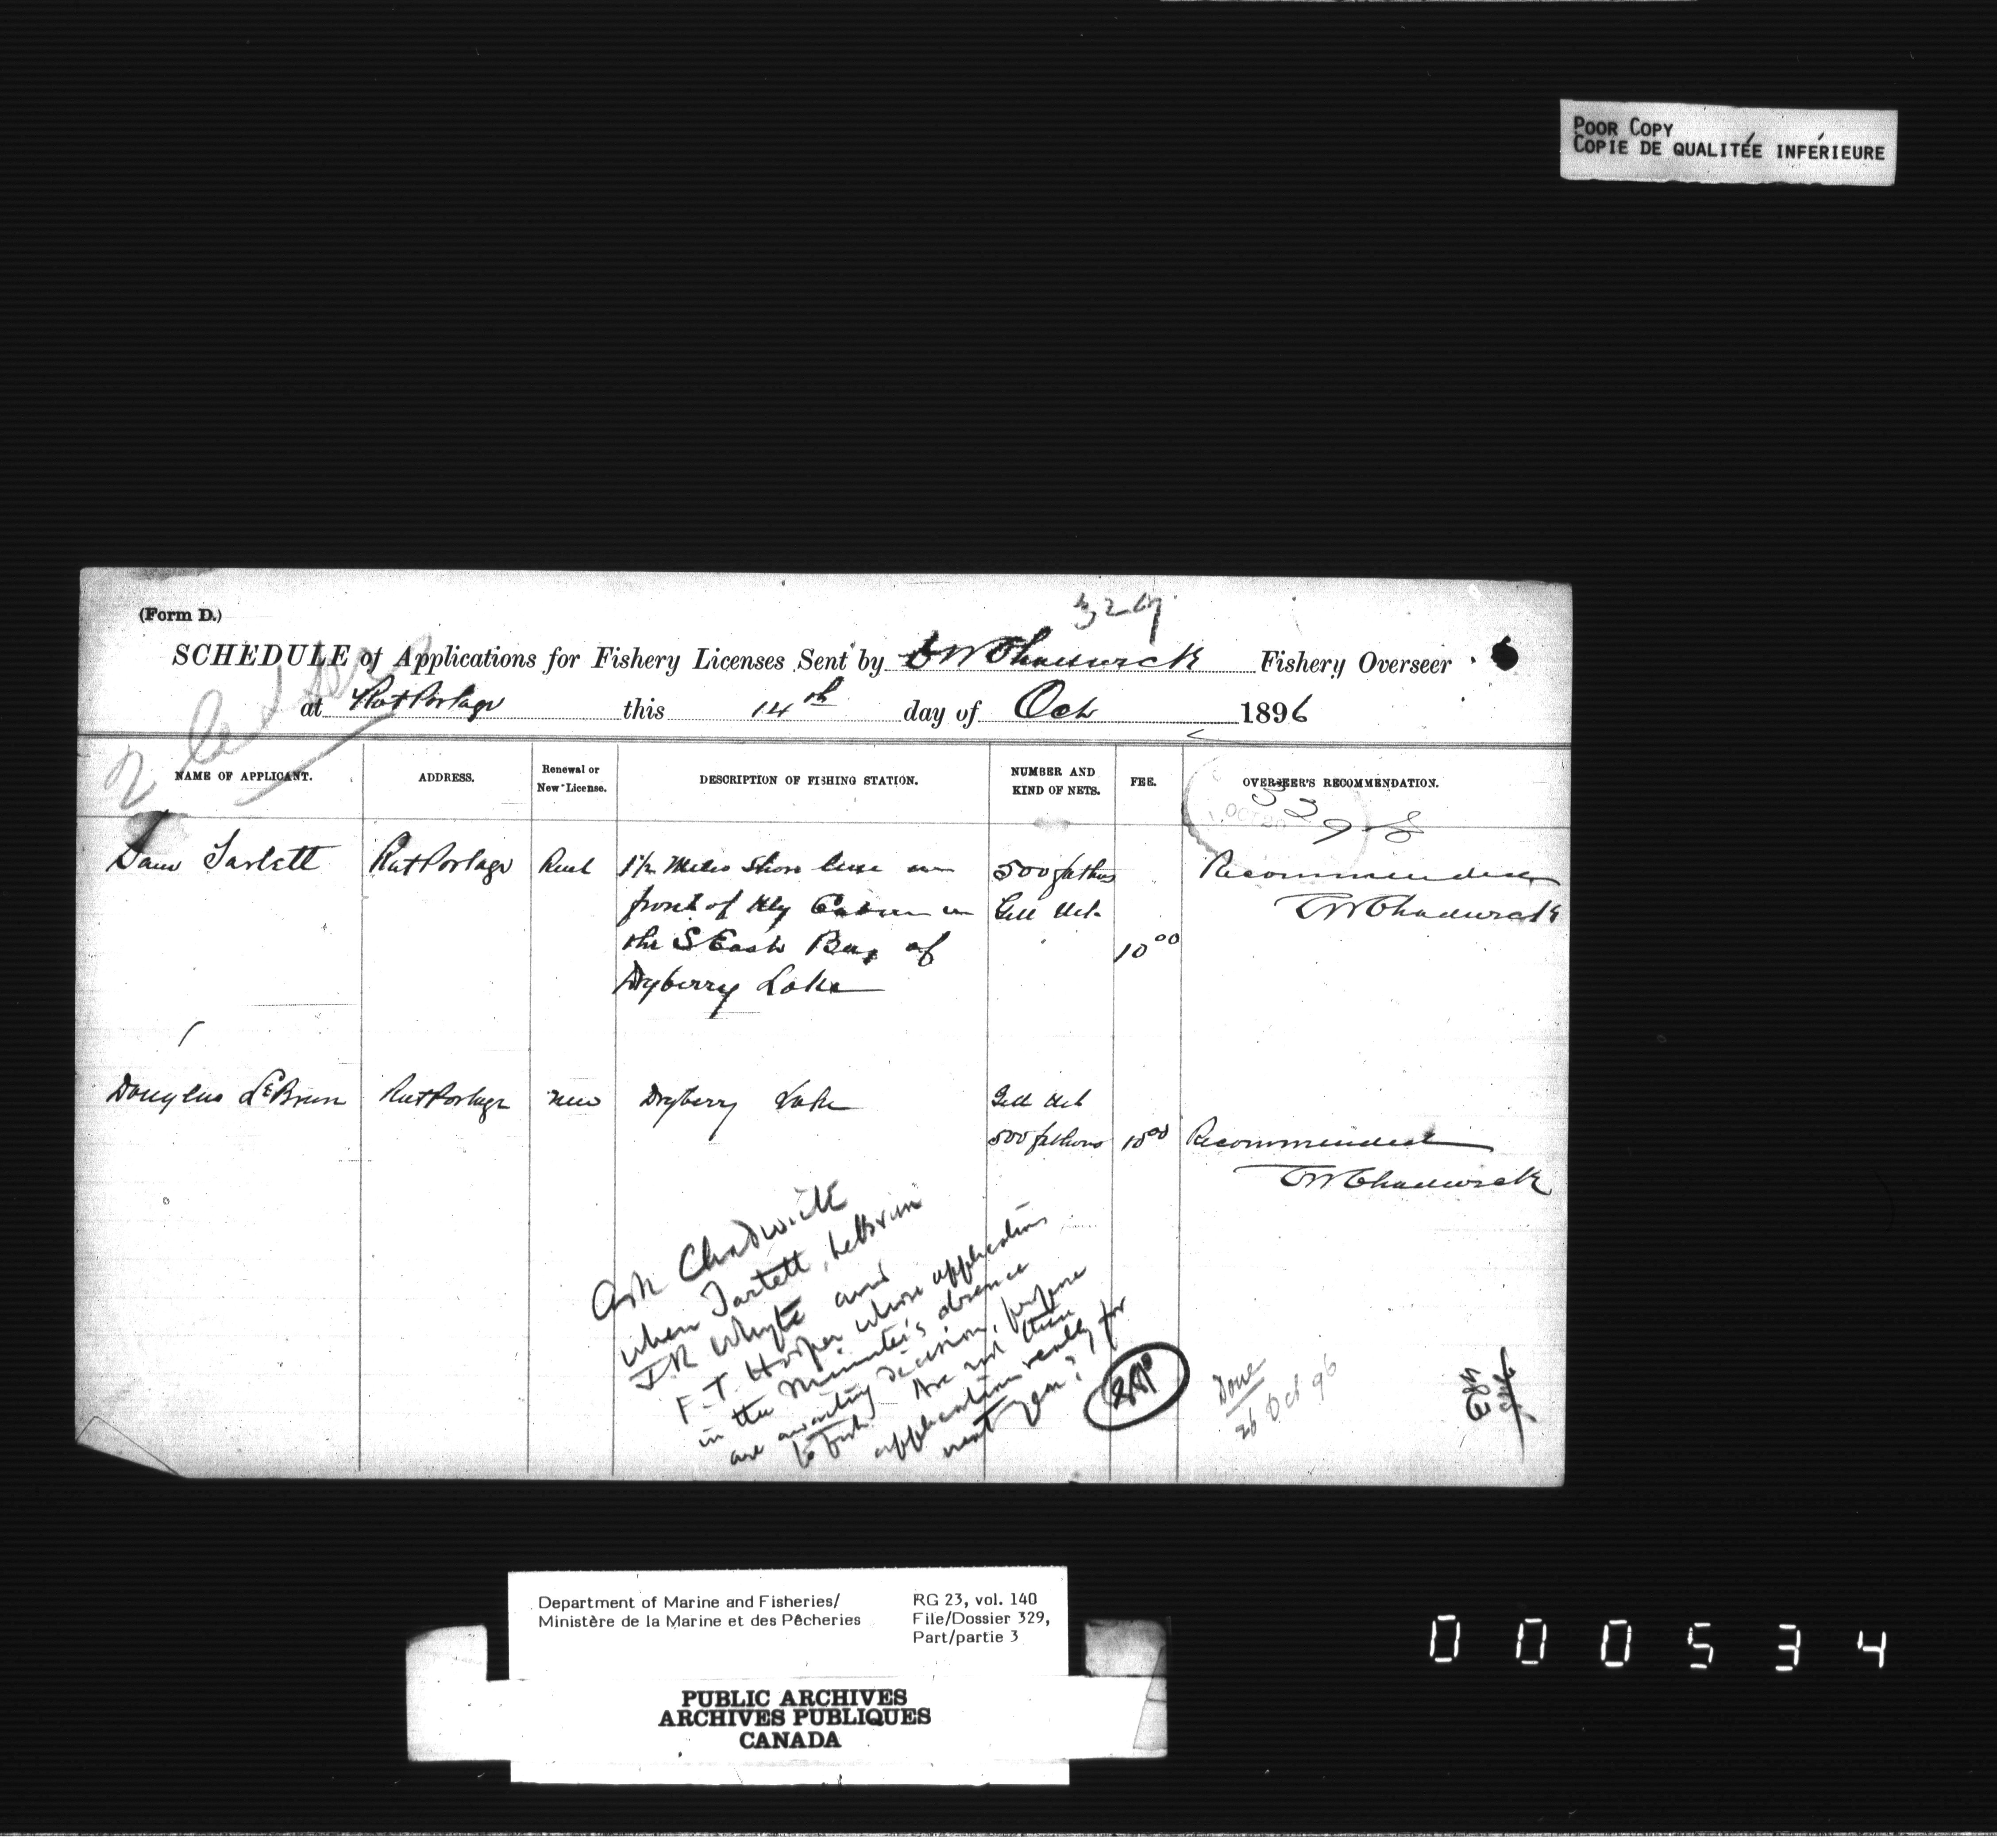 POOR COPY
COPIE DE QUALITÉE INFÉRIEURE
(Form D.)
329
SCHEDULE of Applications for Fishery Licenses Sent by C W Chadwick Fishery Overseer
at Rat Portage this 14th day of Oct 1896
2
NAME OF APPLICANT. ADDRESS. Renewal or New License. DESCRIPTION OF FISHING STATION. NUMBER AND KIND OF NETS. FEE. OVERSEER'S RECOMMENDATION.
OCT 20
Sam Tartett Rat Portage 1½ Miles Shore line in 500 fathoms Recommended
front of My Cabin in Gill Net CW Chadwick
the S East Bay of 10 00
Dryberry Lake
Douglas LeBrun Rat Portage new Dryberry Lake Gill Net
500 fathoms 10 00 Recommended
CW Chadwick
Ask Chadwick
when Tartett, LeBrun
J.R. Whyte and
F.T. Hooper whose applications
in the Minister's absence
are awaiting decision, purpose
to fish. Are not these
applications really for
next year?
Done
26 Oct 96
483
Department of Marine and Fisheries/
Ministère de la Marine et des Pêcheries
RG 23, vol. 140
File/Dossier 329,
Part/partie 3
PUBLIC ARCHIVES
ARCHIVES PUBLIQUES
CANADA
000534